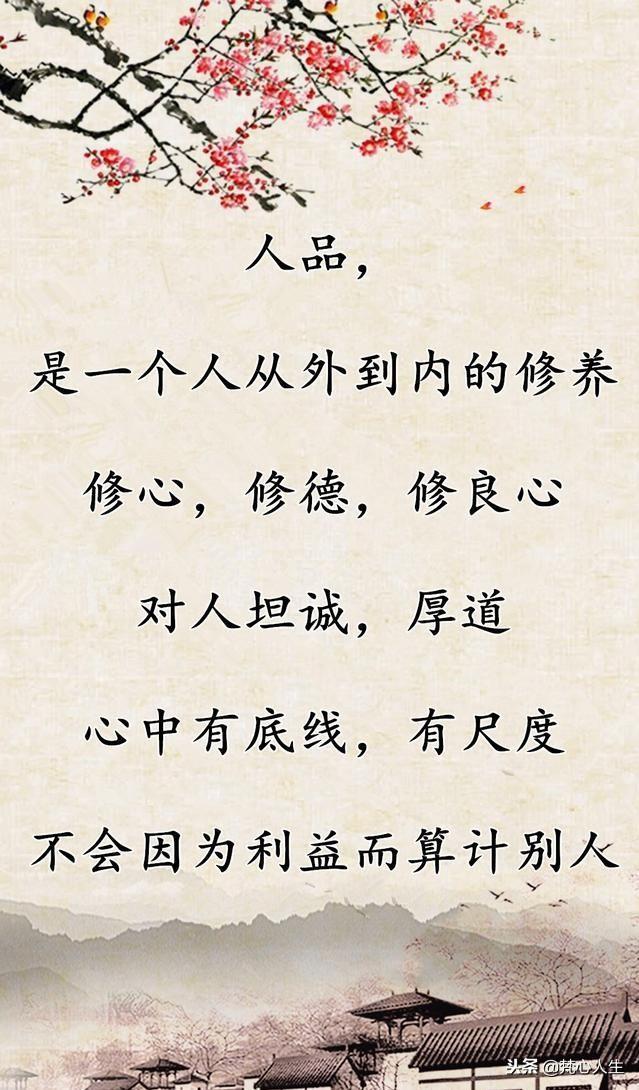 人品，
是一个人从外到内的修养
修心，修德，修良心
对人坦诚，厚道
心中有底线，有尺度
不会因为利益而算计别人
头条 @梵心人生